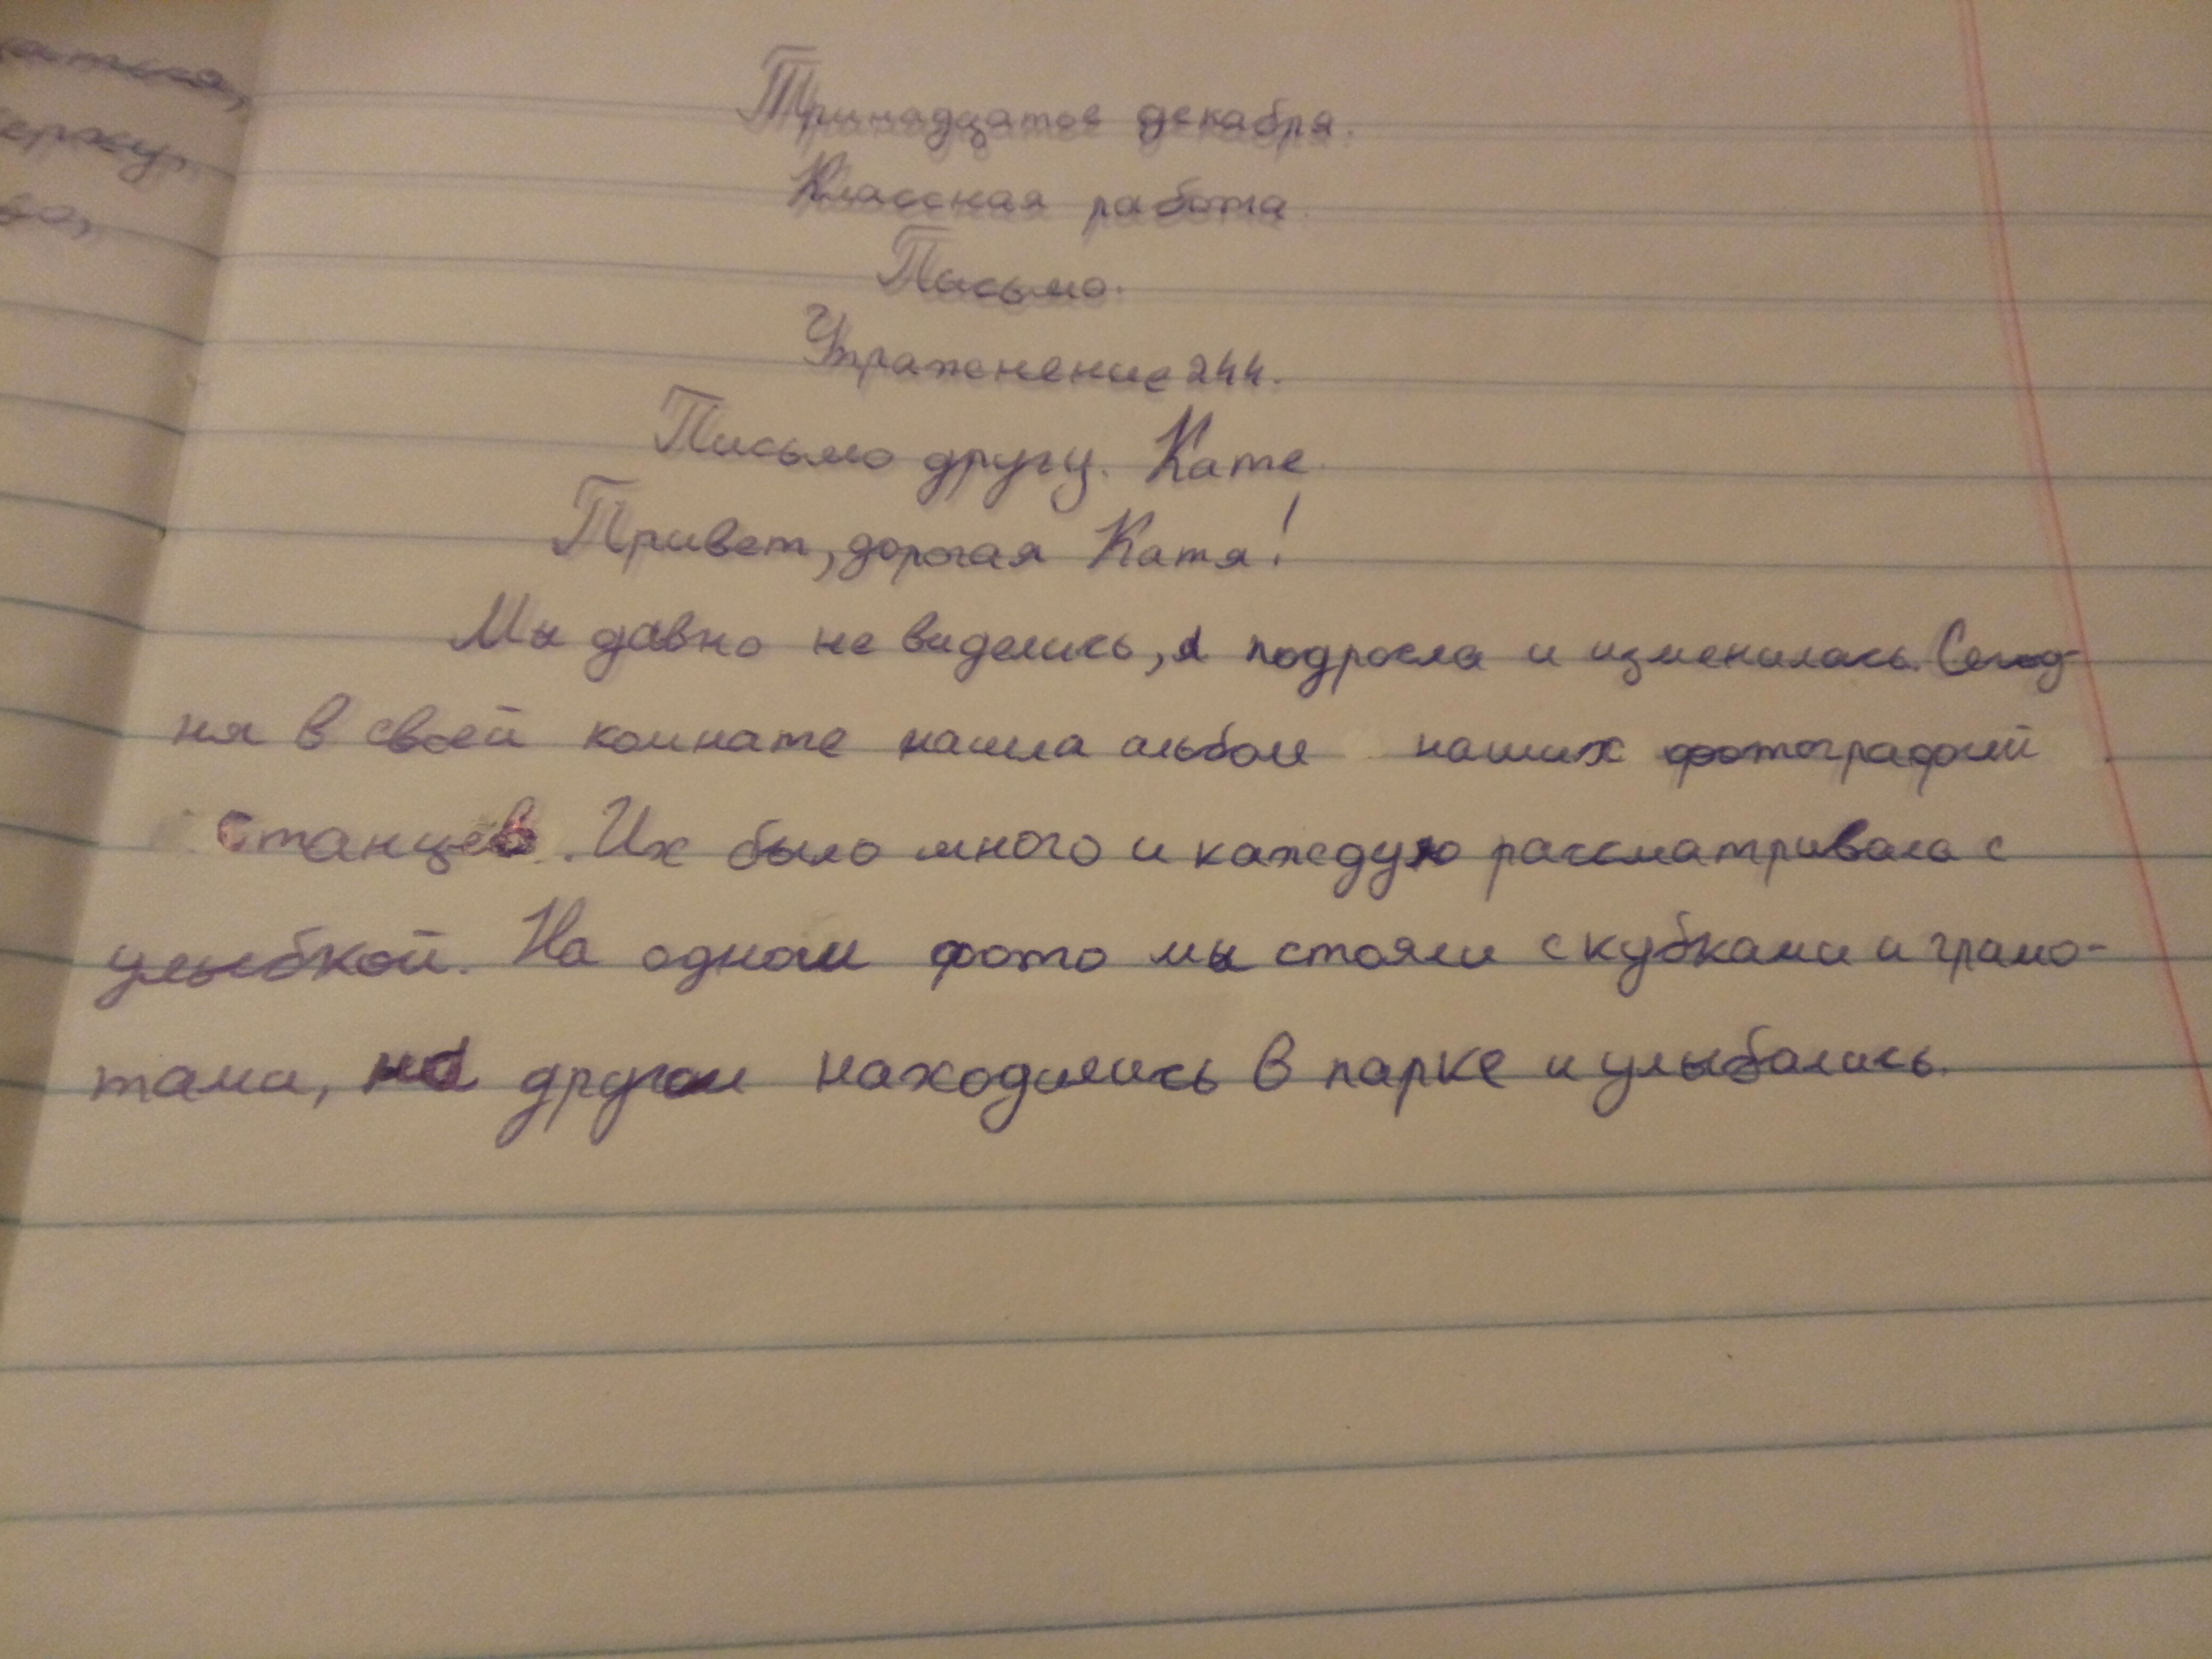 Тринадцатое декабря.
Классная работа.
Письмо.
Упражнение 244.
Письмо другу. Кате.
Привет, дорогая Катя!
Мы давно не виделись, я подросла и изменилась. Сегод-
ня в своей комнате нашла альбом наших фотографий
с танцев. Их было много и каждую рассматривала с
улыбкой. На одном фото мы стояли с кубками и грамо-
тами, на другом находились в парке и улыбались.